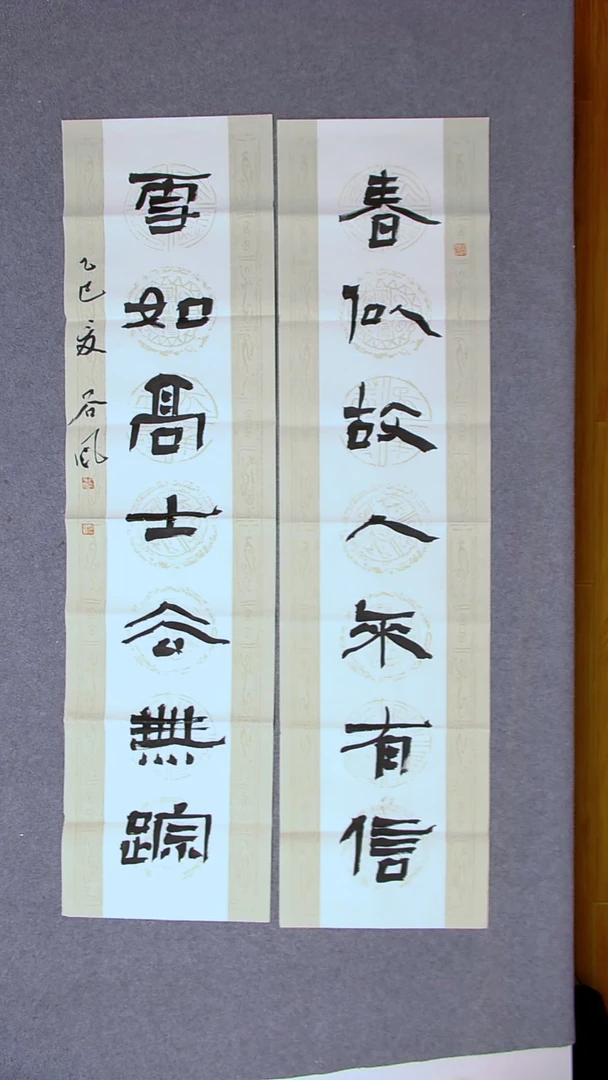 春似故人來有信
雪如高士去無踪
乙巳夏 谷风